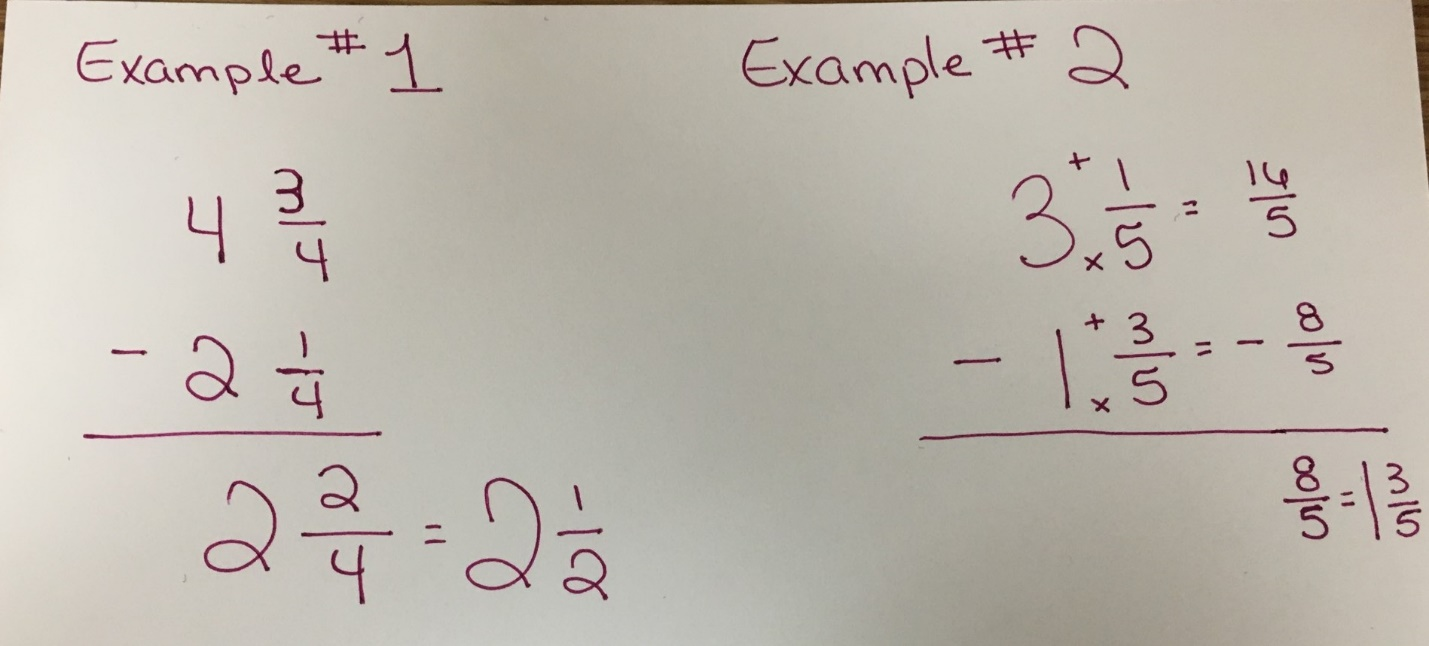 Example #1
4 3/4
- 2 1/4
2 2/4 = 2 1/2
Example # 2
3 + × 1/5 = 16/5
- 1 + × 3/5 = - 8/5
8/5 = 1 3/5